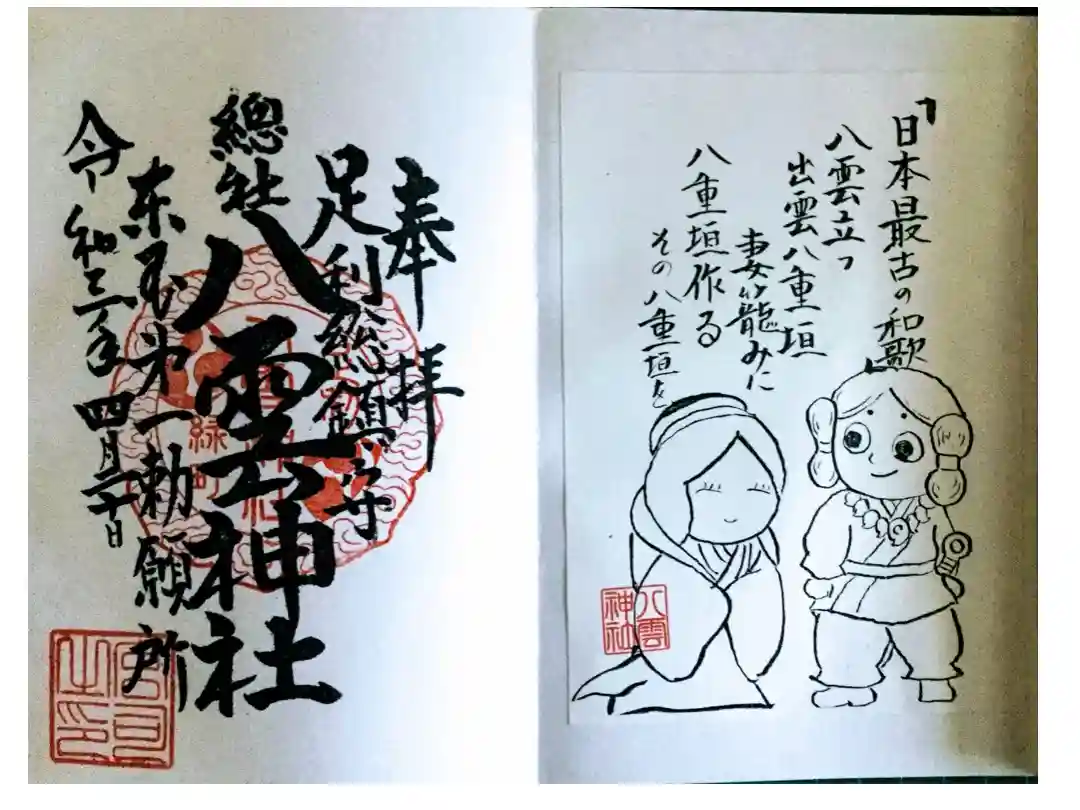 「日本最古の和歌」
八雲立つ
出雲八重垣
妻籠みに
八重垣作る
その八重垣を
八雲
神社
奉拝
足利総鎮守
總社八雲神社
東国第一勅願所
令和三年四月三十日
緑町
宮司
之印